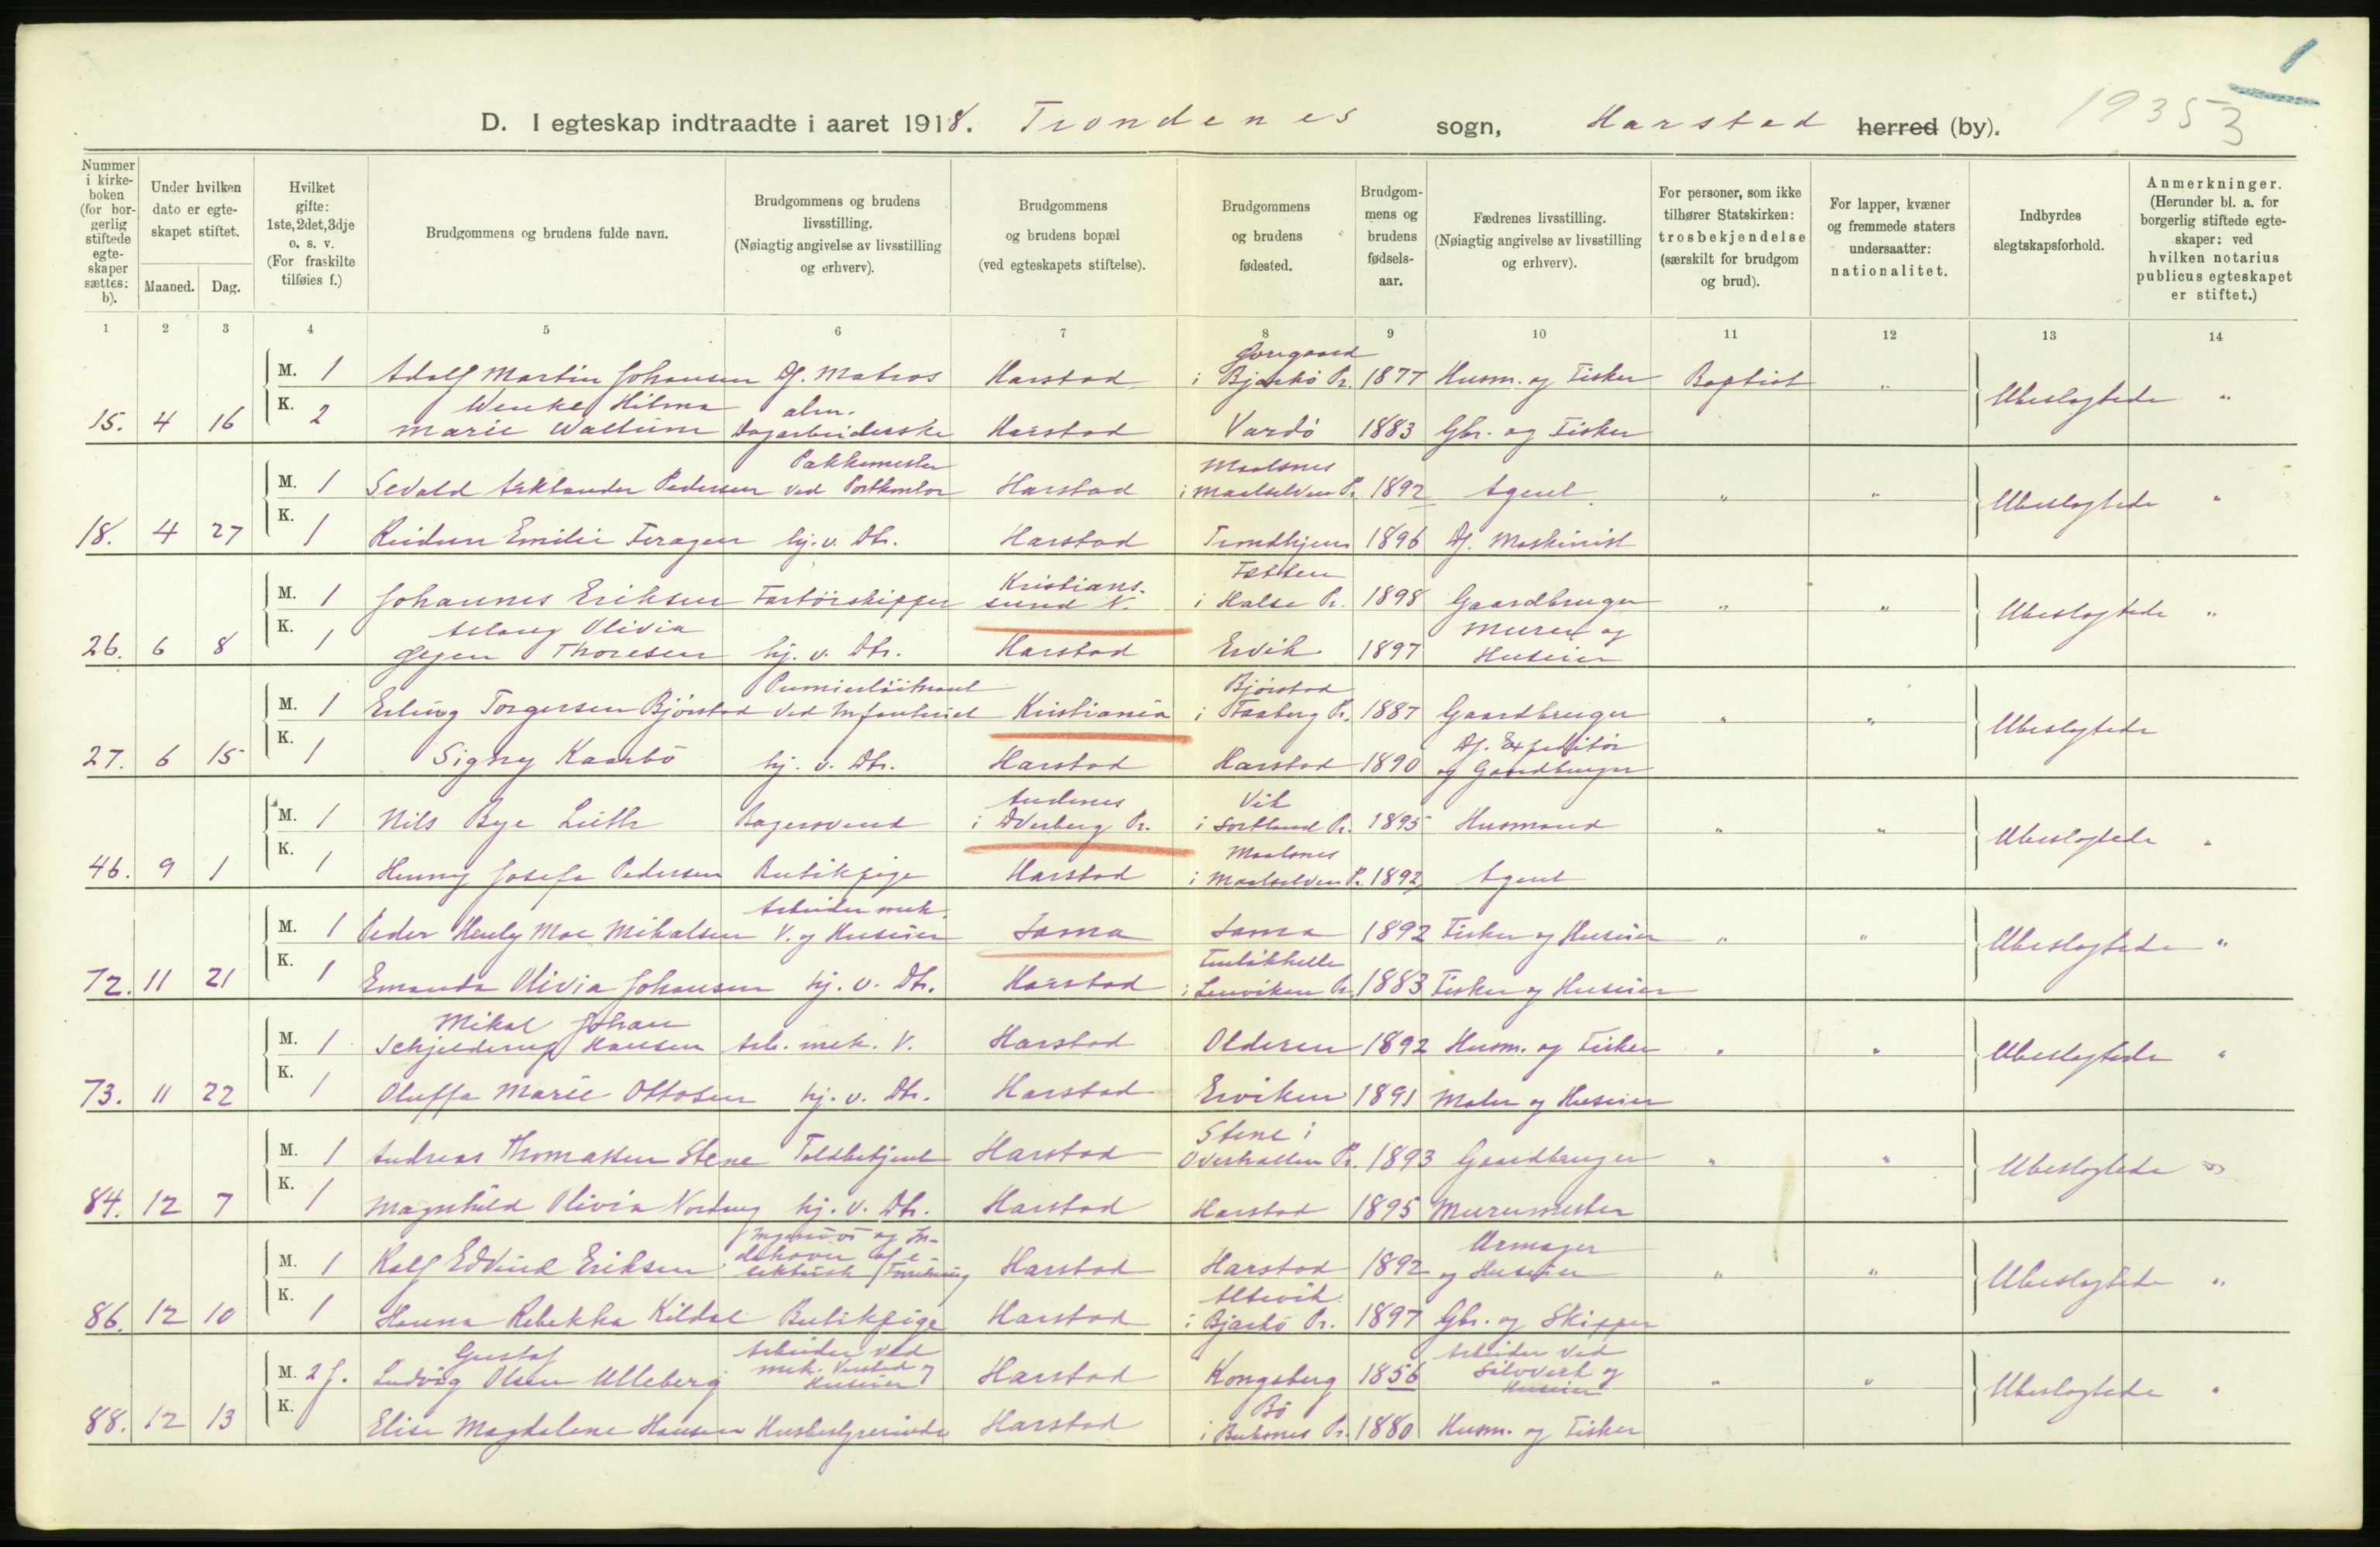 1
19353
D. I egteskap indtraadte i aaret 1918. Trondenes sogn, Harstad herred (by).
Nummer i kirke-boken (for bor-gerlig stiftede egte-skaper sættes: b).
Under hvilken dato er egte-skapet stiftet.
Maaned. Dag.
Hvilket gifte: 1ste, 2det, 3dje o. s. v. (For fraskilte tilføies f.)
Brudgommens og brudens fulde navn.
Brudgommens og brudens livsstilling. (Nøiagtig angivelse av livsstilling og erhverv).
Brudgommens og brudens bopæl (ved egteskapets stiftelse).
Brudgommens og brudens fødested.
Brudgom-mens og brudens fødsels-aar.
Fædrenes livsstilling. (Nøiagtig angivelse av livsstilling og erhverv).
For personer, som ikke tilhører Statskirken: trosbekjendelse (særskilt for brudgom og brud).
For lapper, kvæner og fremmede staters undersaatter: nationalitet.
Indbyrdes slegtskapsforhold.
Anmerkninger. (Herunder bl. a. for borgerlig stiftede egte-skaper: ved hvilken notarius publicus egteskapet er stiftet.)
1 2 3 4 5 6 7 8 9 10 11 12 13 14
M. 1 Adolf Martin Johansen Df. Matros Harstad i Bjarkö Pr. 1877 Husm. og Fisker Baptist " Ubeslegtede "
15. 4 16 K. 2 Wenke Hilma Marie Wallum alm. Dagarbeiderske Harstad Vardö 1883 Gbr. og Fisker
M. 1 Sevald Pedersen Pakkemester ved Postkontor Harstad Maalsnes i Maalselven Pr. 1892 Agent " " Ubeslegtede "
18. 4 27 K. 1 Reidun Emilie Feragen hj. v. Dtr. Harstad Trondhjem 1896 Df. Maskinist
M. 1 Johannes Eriksen Fartöiskipper Kristians-sund N. i Halse Pr. 1898 Gaardbruger " " Ubeslegtede "
26. 6 8 K. 1 Aslaug Olivia Thoresen hj. v. Dtr. Harstad Ervik 1897 Murer og Huseier
M. 1 Erling Torgersen Björstad Premierlöitnant ved Infanteriet Kristiania Björstad i Faaberg Pr. 1887 Gaardbruger " " Ubeslegtede
27. 6 15 K. 1 Signy Kaarbö hj. v. Dtr. Harstad Harstad 1890 Df. Expeditör og Gaardbruger
M. 1 Nils Bye Lieth Bagersvend Andenes i Dverberg Pr. Vik i Sortland Pr. 1895 Husmand " " Ubeslegtede "
46. 9 1 K. 1 Henny Josefa Pedersen Butikpige Harstad Maalsnes i Maalselven Pr. 1892 Agent
M. 1 Peder Moe Mikalsen Arbeider mek. V. og Huseier Sama Sama 1892 Fisker og Huseier " " Ubeslegtede "
72. 11 21 K. 1 Emanda Olivia Johansen hj. v. Dtr. Harstad i Lenviken Pr. 1883 Fisker og Huseier
M. 1 Mikal Johan Schjelderup Hansen Arb. mek. V. Harstad Olderen 1892 Husm. og Fisker " " Ubeslegtede "
73. 11 22 K. 1 Oluffa Marie Ottosen hj. v. Dtr. Harstad Erviken 1891 Maler og Huseier
M. 1 Andreas Thomassen Stene Toldbetjent Harstad Stene i Overhallen Pr. 1893 Gaardbruger " " Ubeslegtede "
84. 12 7 K. 1 Magnhild Olivia hj. v. Dtr. Harstad Harstad 1895 Murmester
M. 1 Rolf Edvind Eriksen Ingeniör og In-dehaver af e-lektrisk Forretning Harstad Harstad 1892 Urmager og Huseier " " Ubeslegtede "
86. 12 10 K. 1 Hanna Rebekka Kildal Butikpige Harstad Altevik i Bjarkö Pr. 1897 Gbr. og Skipper
M. 2 f. Gustaf Ludvig Olsen Ulleberg Arbeider ved mek. Verksted og Huseier Harstad Kongsberg 1856 Arbeider ved Sölvverk og Huseier " " Ubeslegtede "
88. 12 13 K. 1 Elise Magdalene Hansen Husbestyrerinde Harstad Bö i Buksnes Pr. 1880 Husm. og Fisker